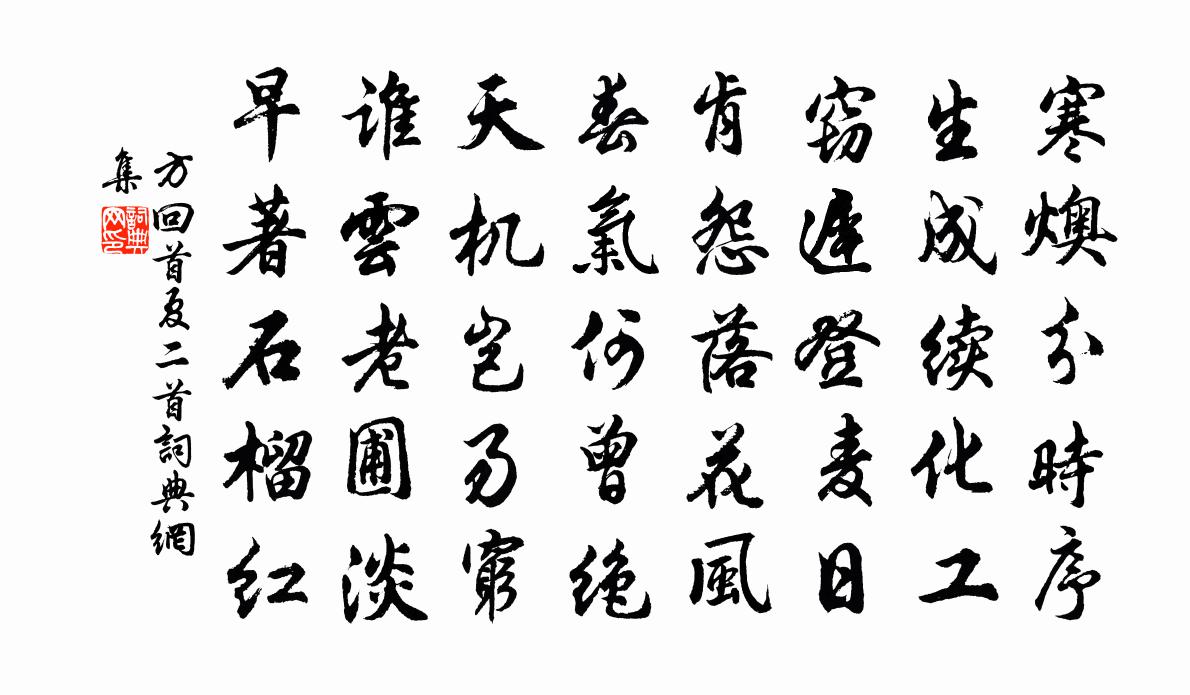 寒燠分時序
生成续化工
窃遲登麦日
肯怨落花風
春氣何曾绝
天机岂易窮
誰雲老圃淡
早著石榴红
方回首夏二首詞典網
集
詞典
网印